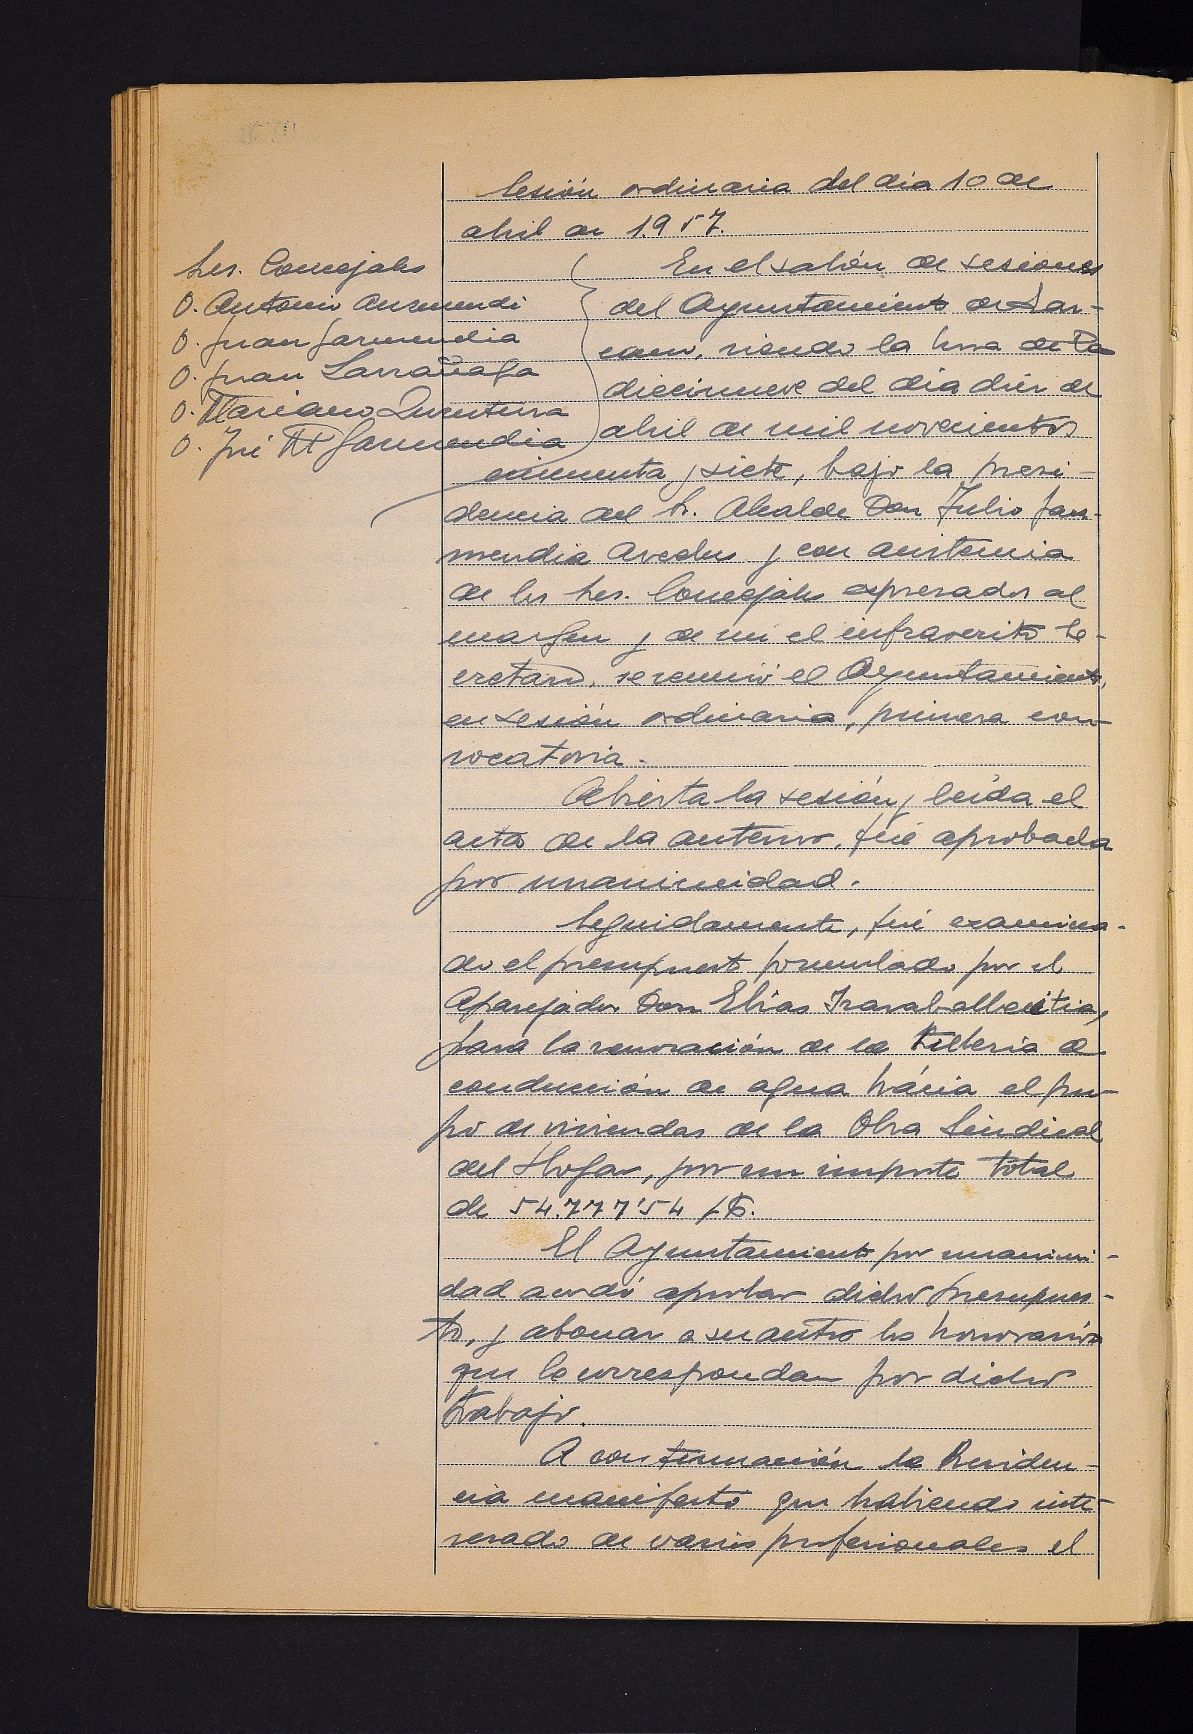 Sesión ordinaria del dia 10 de
abril de 1.957.
Sres. Concejales
D. Antonio Auzmendi
D. Juan Garmendia
D. Juan Larrañaga
D. Mariano Quinterna
D. José Mª Garmendia
En el salón de sesiones
del Ayuntamiento de Laz-
cano, siendo la hora de la
diecinueve del dia diez de
abril de mil novecientos
cincuenta y siete, bajo la presi-
dencia del Sr. Alcalde Don Julio Gar-
mendia Aredus y con asistencia
de los Sres. Concejales expresados al
margen y de mi el infrascrito Se-
cretario, se reunió el Ayuntamiento,
en sesión ordinaria, primera con-
vocatoria.-
Abierta la sesión y leída el
acta de la anterior, fué aprobada
por unanimidad.
Seguidamente, fué examina-
do el presupuesto formulado por el
Aparejador Don Elias Irazaballbeitia,
para la renovación de la tubería de
conducción de agua hácia el gru-
po de viviendas de la Obra Sindical
del Hogar, por un importe total
de 54.777'54 pts.
El Ayuntamiento por unanimi-
dad acordó aprobar dicho presupues-
to, y abonar a su autor los honorarios
que le correspondan por dicho
trabajo.
A continuación la Presiden-
cia manifestó que habiendo inte-
resado de varios profesionales el